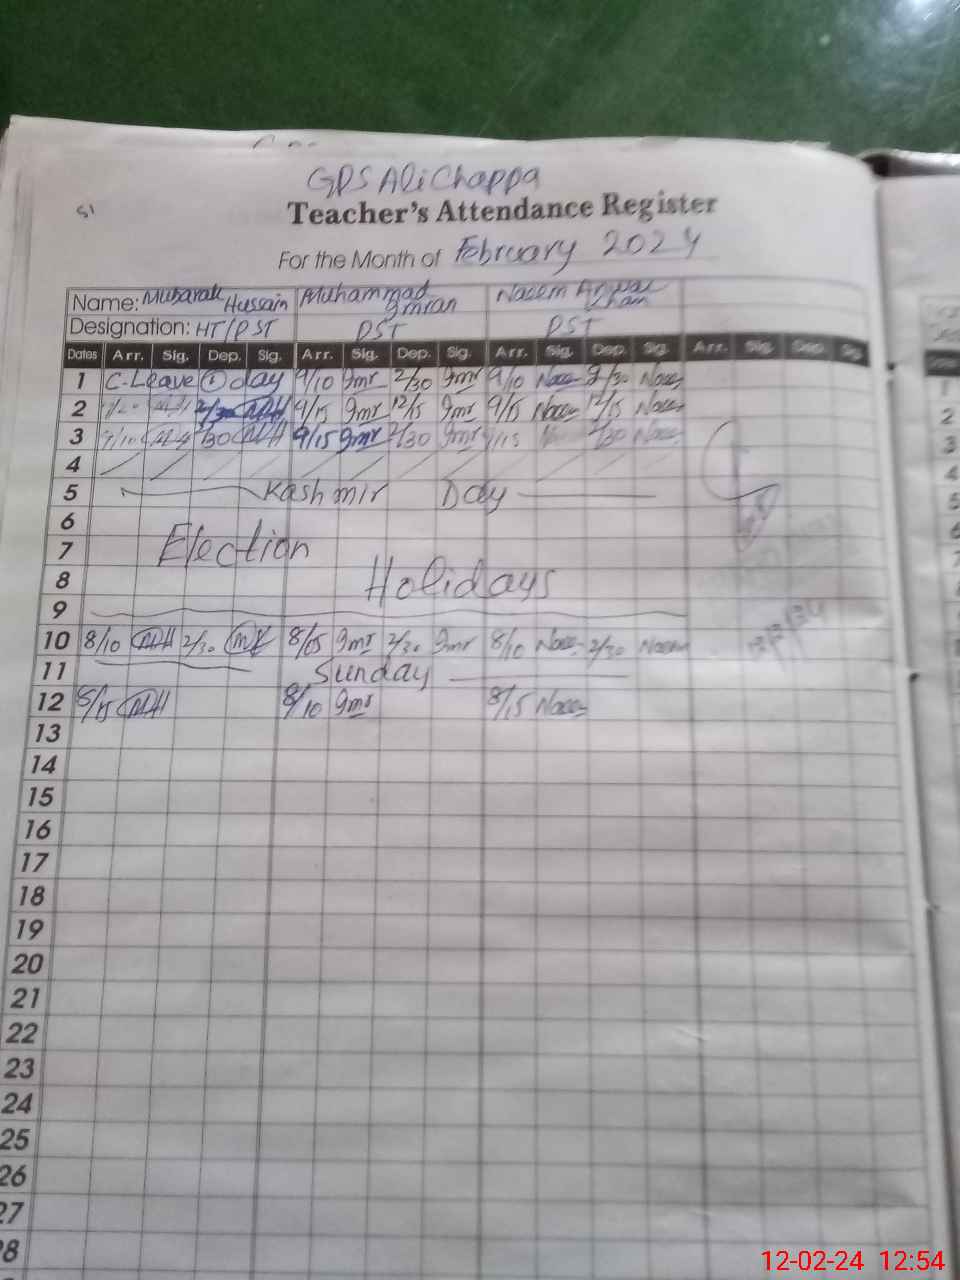 GPS Ali Chappa
51
Teacher's Attendance Register
For the Month of February 2024
Name: Mubarak Hussain Muhammad Imran Naeem Anwar Khan
Designation: HT/PST PST PST
Dates Arr. Sig. Dep. Sig. Arr. Sig. Dep. Sig. Arr. Sig. Dep. Sig. Arr. Sig. Dep. Sig.
1 C-Leave 1 day 9/10 Imr 2/30 Imr 9/10 Naee 2/30 Naee
2 MH 2/30 MH 9/15 Imr 12/15 Imr 9/15 Naee 12/15 Naee
3 9/10 MH 2/30 MH 9/15 Imr 2/30 Imr 9/15 2/30 Naee
4
5 Kashmir Day
6
7 Election
8 Holidays
9
10 8/10 MH 2/30 MH 8/05 Imr 2/30 Imr 8/10 Naee 2/30 Naeem
11 Sunday
12 8/15 MH 8/10 Imr 8/15 Naee
13
14
15
16
17
18
19
20
21
22
23
24
25
26
27
28
12-02-24 12:54